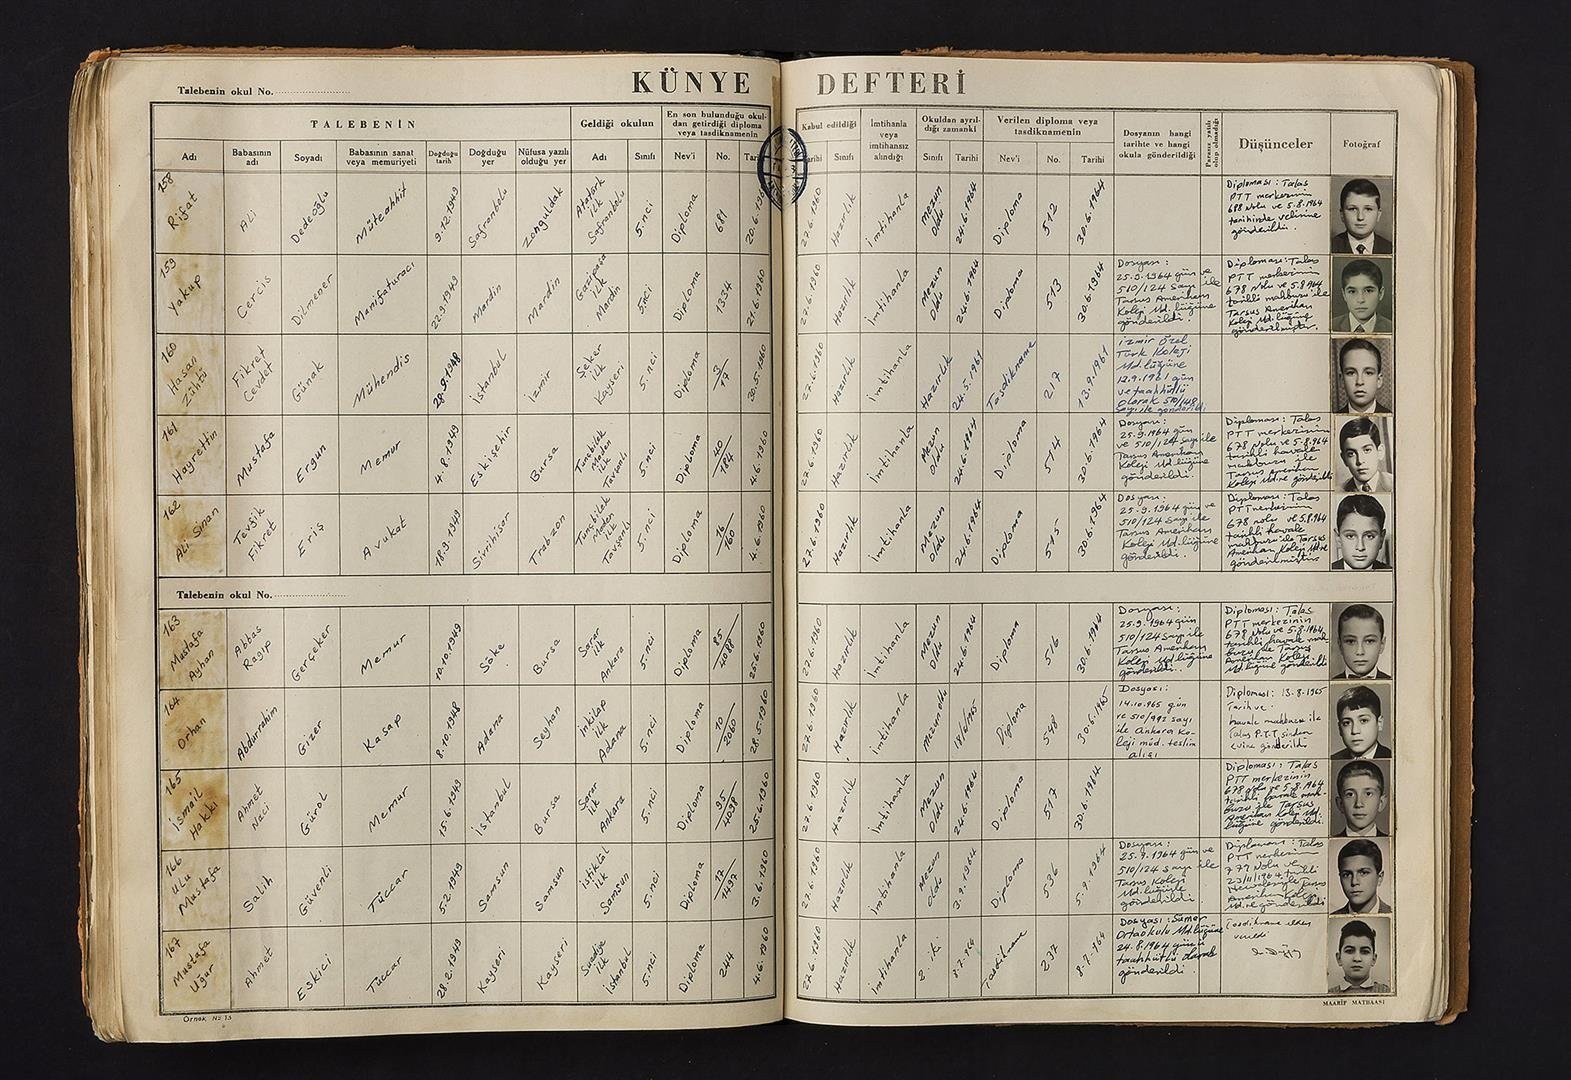 KÜNYE DEFTERİ
Talebenin okul No.
TALEBENİN
Geldiği okulun
En son bulunduğu okul-
dan getirdiği diploma
veya tasdiknamenin
Kabul edildiği
İmtihanla
veya
imtihansız
alındığı
Okuldan ayrıl-
dığı zamanki
Verilen diploma veya
tasdiknamenin
Dosyanın hangi
tarihte ve hangi
okula gönderildiği
Düşünceler
Fotoğraf
Adı
Babasının
adı
Soyadı
Babasının sanat
veya memuriyeti
Doğduğu
tarih
Doğduğu
yer
Nüfusa yazılı
olduğu yer
Adı
Sınıfı
Nev'i
No.
Tarihi
Sınıfı
Sınıfı
Tarihi
Nev'i
No.
Tarihi
158 Rifat
Ali
Dedeoğlu
Müteahhit
9.12.1949
Safranbolu
Zonguldak
Atatürk
İlk
Safranbolu
5.nci
Diploma
681
27.6.1960
Hazırlık
İmtihanla
Mezun
Oldu
24.6.1964
Diploma
512
30.6.1964
Diploması: Talas
PTT merkezinin
688 Nolu ve 5.8.1964
tarihinde velisine
gönderildi.
159 Yakup
Cercis
Dilmener
Manifaturacı
22.9.1949
Mardin
Mardin
Gazipaşa
İlk
Mardin
5.nci
Diploma
1334
21.6.1960
27.6.1960
Hazırlık
İmtihanla
Mezun
Oldu
24.6.1964
Diploma
513
30.6.1964
Dosyası:
25.9.1964 gün ve
510/124 sayı ile
Tarsus Amerikan
Koleji Md.lüğüne
gönderildi.
Diploması: Talas
PTT merkezinin
678 Nolu ve 5.8.964
tarihli makbuzu ile
Tarsus Amerikan
Koleji Md.lüğüne
gönderilmiştir.
160 Hasan
Zühtü
Fikret
Cevdet
Günak
Mühendis
28.9.1948
İstanbul
İzmir
Şeker
İlk
Kayseri
5.nci
Diploma
3/17
30.5.1960
27.6.1960
Hazırlık
İmtihanla
Hazırlık
24.5.1961
Tasdikname
217
13.9.1961
İzmir Özel
Türk Koleji
Md.lüğüne
12.9.1961 gün
ve taahhütlü
olarak 510/148
sayı ile gönderildi
161 Hayrettin
Mustafa
Ergun
Memur
4.8.1949
Eskişehir
Bursa
Tunçbilek
Maden
İlk
Tavşanlı
5.nci
Diploma
40/184
4.6.1960
27.6.1960
Hazırlık
İmtihanla
Mezun
Oldu
24.6.1964
Diploma
514
30.6.1964
Dosyası:
25.9.1964 gün
ve 510/124 sayı ile
Tarsus Amerikan
Koleji Md.lüğüne
gönderildi.
Diploması: Talas
PTT merkezinin
678 Nolu ve 5.8.964
tarihli havale
makbuzu ile
Tarsus Amerikan
Koleji Md.ne gönderildi
162 Ali Sinan
Tevfik
Fikret
Eriş
Avukat
18.9.1949
Sivrihisar
Trabzon
Tunçbilek
Maden
İlk
Tavşanlı
5.nci
Diploma
16/160
4.6.1960
27.6.1960
Hazırlık
İmtihanla
Mezun
Oldu
24.6.1964
Diploma
515
30.6.1964
Dosyası:
25.9.1964 gün ve
510/124 sayı ile
Tarsus Amerikan
Koleji Md.lüğüne
gönderildi.
Diploması: Talas
PTT merkezinin
678 nolu ve 5.8.964
tarihli havale
makbuzu ile Tarsus
Amerikan Koleji Md.ne
gönderilmiştir.
Talebenin okul No.
163 Mustafa
Ayhan
Abbas
Ragıp
Gerçeker
Memur
10.10.1949
Söke
Bursa
Sarar
İlk
Ankara
5.nci
Diploma
85/4088
25.6.1960
27.6.1960
Hazırlık
İmtihanla
Mezun
Oldu
24.6.1964
Diploma
516
30.6.1964
Dosyası:
25.9.1964 gün
510/124 sayı ile
Tarsus Amerikan
Koleji Md.lüğüne
gönderildi.
Diploması: Talas
PTT merkezinin
678 Nolu ve 5.8.1964
tarihli havale mak-
buzu ile Tarsus
Amerikan Koleji
Md.lüğüne gönderildi
164 Orhan
Abdurrahim
Gizer
Kasap
8.10.1948
Adana
Seyhan
İnkilap
İlk
Adana
5.nci
Diploma
10/2060
28.5.1960
27.6.1960
Hazırlık
İmtihanla
Mezun oldu
18/6/965
Diploma
548
30.6.1965
Dosyası:
14.10.965 gün
ve 510/992 sayı
ile Ankara Ko-
leji müd. teslim
alışı
Diploması: 13.8.1965
Tarih ve
havale makbuzu ile
Talas P.T.T.sinden
evine gönderildi
165 İsmail
Hakkı
Ahmet
Naci
Gürol
Memur
15.6.1949
İstanbul
Bursa
Sarar
İlk
Ankara
5.nci
Diploma
95/4098
25.6.1960
27.6.1960
Hazırlık
İmtihanla
Mezun
Oldu
24.6.1964
Diploma
517
30.6.1964
Diploması: Talas
PTT merkezinin
678 Nolu ve 5.8.1964
tarihli havale mak-
buzu ile Tarsus
Amerikan Koleji Md.
lüğüne gönderildi.
166 Ulu
Mustafa
Salih
Güvenli
Tüccar
5.2.1949
Samsun
Samsun
İstiklâl
İlk
Samsun
5.nci
Diploma
17/1497
3.6.1960
27.6.1960
Hazırlık
İmtihanla
Mezun
Oldu
3.9.1964
Diploma
536
5.9.1964
Dosyası:
25.9.1964 gün ve
510/124 sayı ile
Tarsus Koleji
Md.lüğüne
gönderildi.
Diploması: Talas
PTT merkezinin
779 Nolu ve
23/11/1964 tarihli
167 Mustafa
Uğur
Ahmet
Eskici
Tüccar
28.2.1949
Kayseri
Kayseri
Suadiye
İlk
İstanbul
5.nci
Diploma
244
4.6.1960
27.6.1960
Hazırlık
İmtihanla
8.7.964
Tasdikname
237
8.7.964
Dosyası: Sümer
Ortaokulu Md.lüğüne
24.8.1964 günü
taahhütlü olarak
gönderildi.
Tasdikname elden
verildi
Örnek No 13
MAARİF MATBAASI